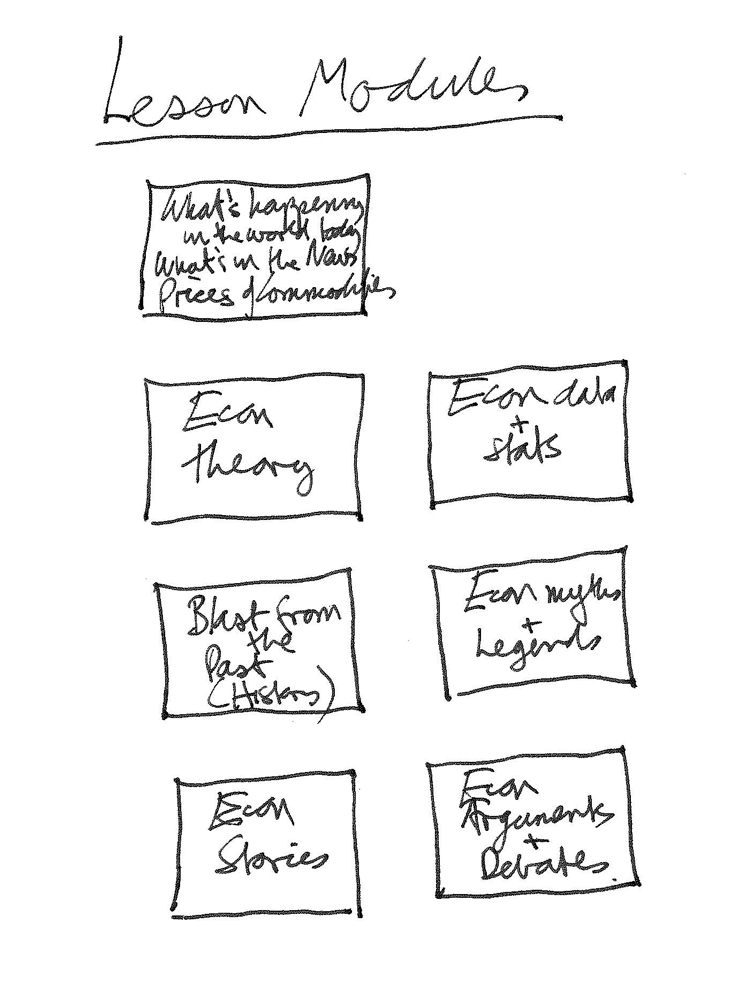 Lesson Modules
What's happening
in the world today
What's in the News
Prices of Commodities
Econ
theory
Econ data
+
stats
Blast from
the
Past
(History)
Econ myths
+
Legends
Econ
Stories
Econ
Arguments
+
Debates.